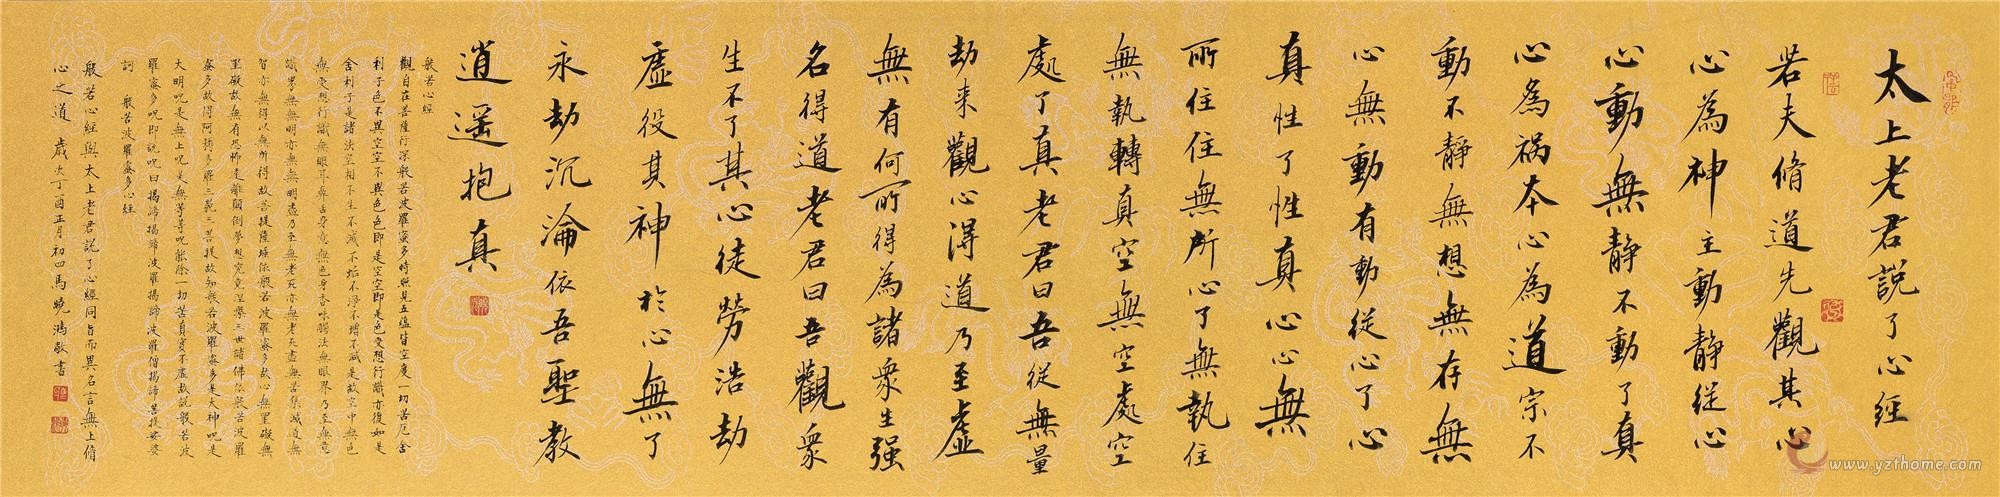 太上老君說了心經
若夫脩道先觀其心
心為神主動靜從心
心動無靜不動了真
心為祸本心為道宗不
動不靜無想無存無
心無動有動從心了心
真性了性真心心無
所住住無所心了無執住
無執轉真空無空處空
處了真老君曰吾從無量
劫来觀心得道乃至虛
無有何所得為諸衆生强
名得道老君曰吾觀衆
生不了其心徒勞浩劫
虛役其神於心無了
永劫沉淪依吾聖教
逍遥抱真
般若心經
觀自在菩薩行深般若波羅蜜多時照見五蘊皆空度一切苦厄舍
利子色不異空空不異色色即是空空即是色受想行識亦復如是
舍利子是諸法空相不生不滅不垢不淨不增不減是故空中無色
無受想行識無眼耳鼻舌身意無色身香味觸法無眼界乃至無意
識界無無明亦無無明盡乃至無老死亦無老死盡無苦集滅道無
智亦無得以無所得故菩提薩埵依般若波羅蜜多故心無罣礙無
罣礙故無有恐怖遠離顛倒夢想究竟涅槃三世諸佛依般若波羅
蜜多故得阿耨多羅三藐三菩提故知般若波羅蜜多是大神咒是
大明咒是無上咒是無等等咒能除一切苦真實不虛故說般若波
羅蜜多咒即說咒曰揭諦揭諦波羅揭諦波羅僧揭諦菩提娑婆
訶 般若波羅蜜多心經
般若心經與太上老君説了心經同旨而異名言無上脩
心之道 歲次丁酉正月初四馬曉鴻敬書
www.yzthome.com